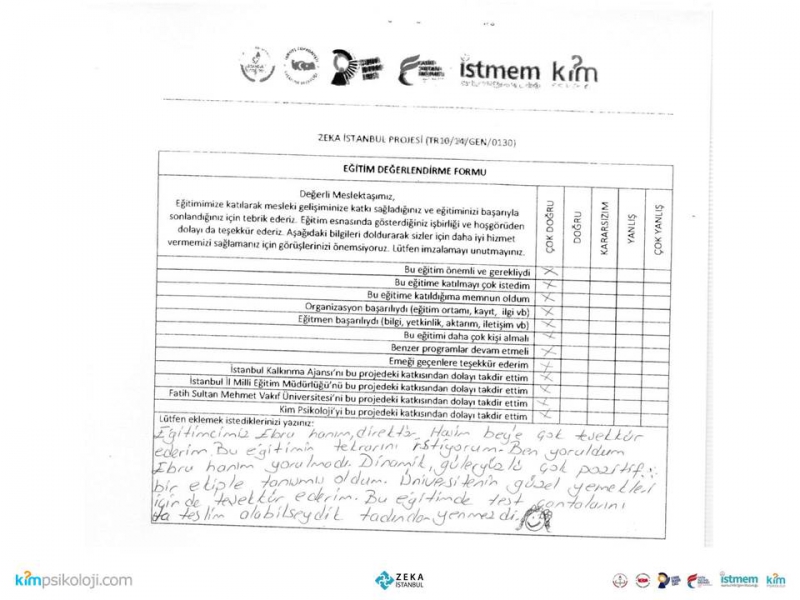 istmem kim
ZEKA İSTANBUL PROJESİ (TR10/14/GEN/0130)
EĞİTİM DEĞERLENDİRME FORMU
Değerli Meslektaşımız,
Eğitimimize katılarak mesleki gelişiminize katkı sağladığınız ve eğitiminizi başarıyla
sonlandığınız için tebrik ederiz. Eğitim esnasında gösterdiğiniz işbirliği ve hoşgörüden
dolayı da teşekkür ederiz. Aşağıdaki bilgileri doldurarak sizler için daha iyi hizmet
vermemizi sağlamanız için görüşlerinizi önemsiyoruz. Lütfen imzalamayı unutmayınız.
ÇOK DOĞRU
DOĞRU
KARARSIZIM
YANLIŞ
ÇOK YANLIŞ
Bu eğitim önemli ve gerekliydi
Bu eğitime katılmayı çok istedim
Bu eğitime katıldığıma memnun oldum
Organizasyon başarılıydı (eğitim ortamı, kayıt, ilgi vb)
Eğitmen başarılıydı (bilgi, yetkinlik, aktarım, iletişim vb)
Bu eğitimi daha çok kişi almalı
Benzer programlar devam etmeli
Emeği geçenlere teşekkür ederim
İstanbul Kalkınma Ajansı'nı bu projedeki katkısından dolayı takdir ettim
İstanbul İl Milli Eğitim Müdürlüğü'nü bu projedeki katkısından dolayı takdir ettim
Fatih Sultan Mehmet Vakıf Üniversitesi'ni bu projedeki katkısından dolayı takdir ettim
Kim Psikoloji'yi bu projedeki katkısından dolayı takdir ettim
Lütfen eklemek istediklerinizi yazınız:
Eğitimcimiz Ebru hanım, direktör Haşim bey'e çok teşekkür
ederim. Bu eğitimin tekrarını istiyorum. Ben yoruldum
Ebru hanım yorulmadı. Dinamik, güleryüzlü çok pozitif
bir ekiple tanımış oldum. Üniversitenin güzel yemekleri
için de teşekkür ederim. Bu eğitimde test çantalarını
da teslim alabilseydik tadından yenmezdi.
kimpsikoloji.com
ZEKA
İSTANBUL
istmem
kim